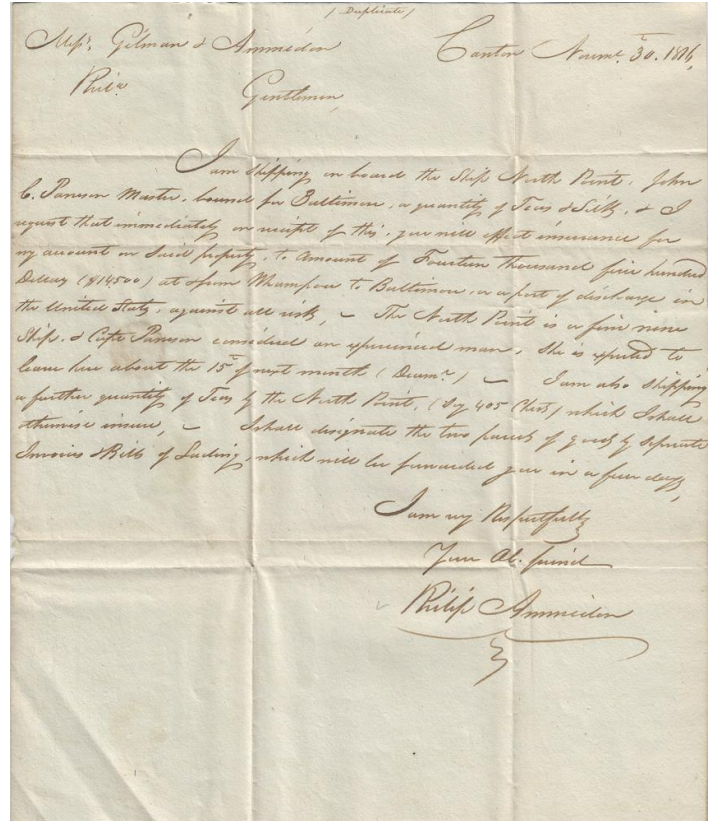 ( Duplicate )
Messrs. Gilman & Ammidon Canton Novemr. 30. 1816,
Phila.
Gentlemen,
I am shipping on board the Ship North Point, John
C. Pearson Master, bound for Baltimore, a quantity of Teas & Silks, & I
request that immediately on receipt of this, you will effect insurance for
my account on said property, to amount of Fourteen thousand five hundred
Dollars ($14500) at & from Whampoa to Baltimore, or a port of discharge in
the United States, against all risk, – The North Point is a fine new
Ship, & Capt. considered an experienced man. She is expected to
leave here about the 15th of next month ( Decemr. ) – I am also shipping
a further quantity of Teas by the North Point, (Say 405 Chests) which I shall
otherwise insure, – I shall designate the two parcels of goods by seperate
Invoices & Bills of Lading, which will be forwarded you in a few days,
I am very Respectfully
Your Ob. friend
Philip Ammidon